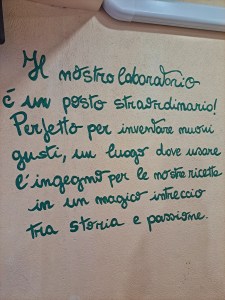 Il nostro laboratorio
è un posto straordinario!
Perfetto per inventare nuovi
gusti, un luogo dove usare
l'ingegno per le nostre ricette
in un magico intreccio
tra storia e passione.